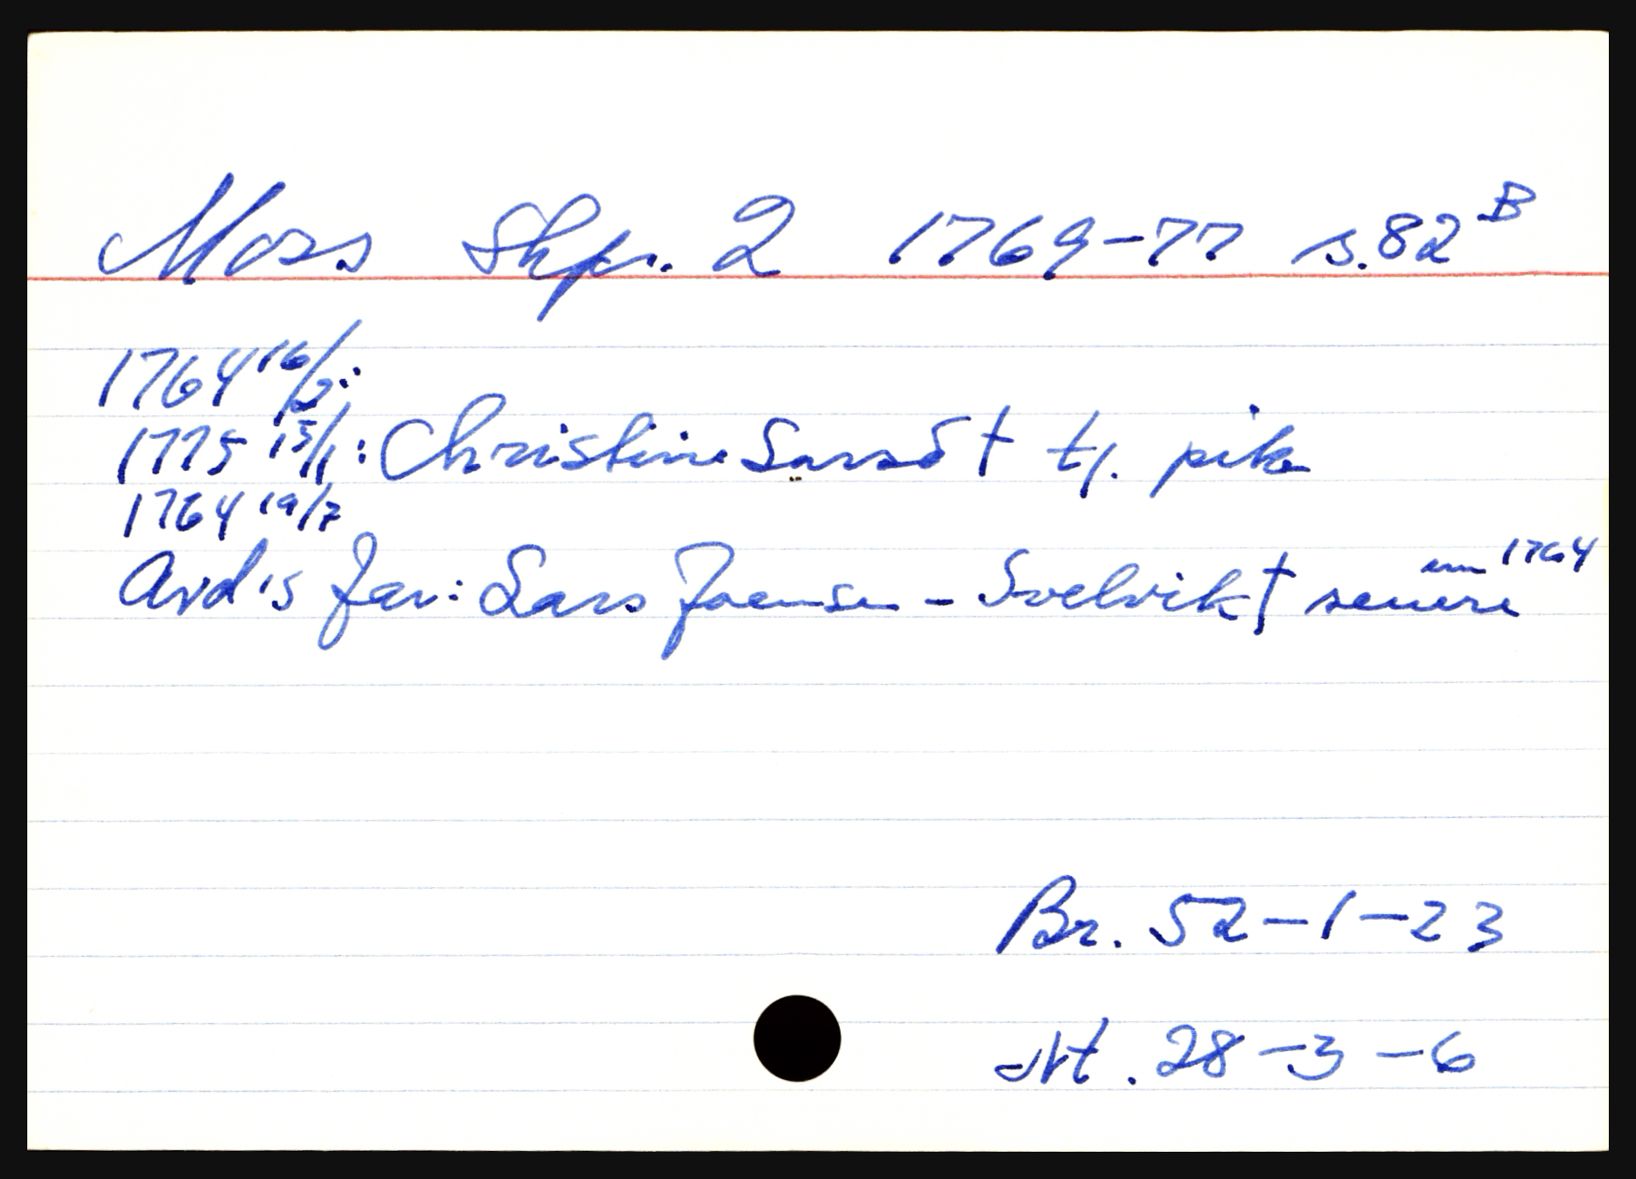 Moss Skpr. 2 1769-77 s.82 B
1764 16/2:
1775 15/1: Christine Larsd † tj. pike
1764 19/7
Avd's far: Lars Joensen - Svelvik † senere enn 1764
Br. 52-1-23
Nt. 28-3-6